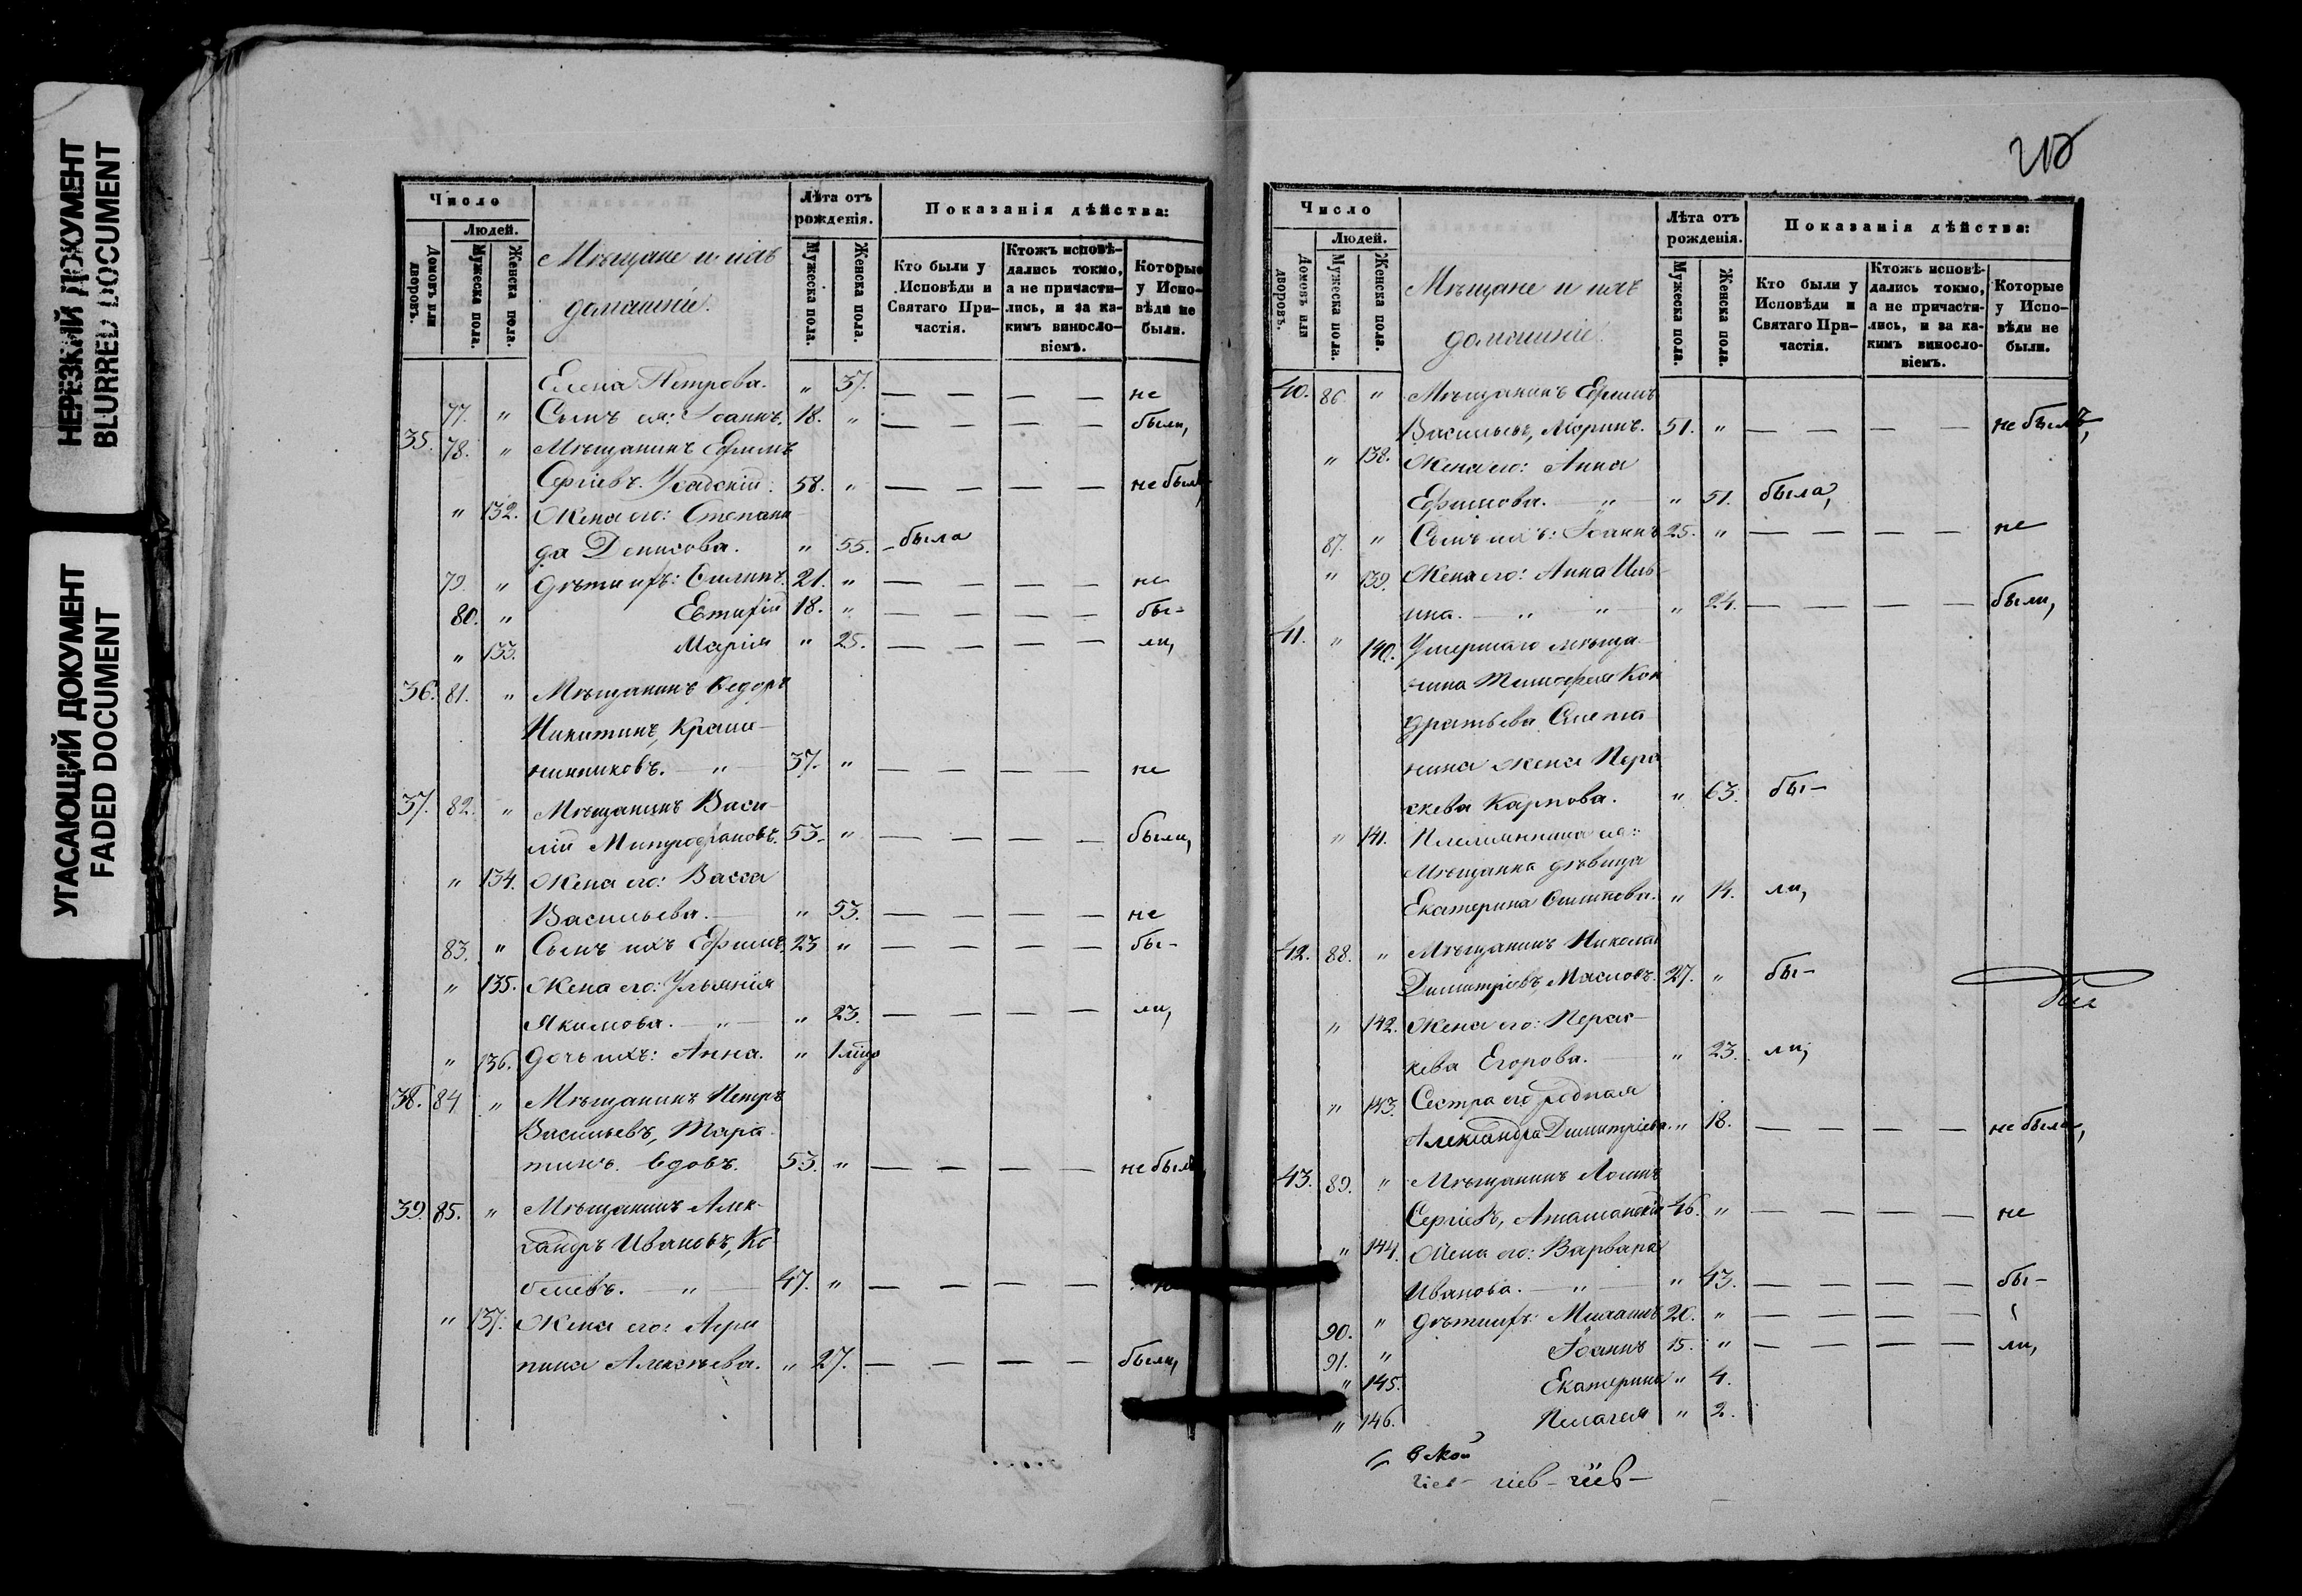 НЕРЕЗКИЙ ДОКУМЕНТ
BLURRED DOCUMENT
УГАСАЮЩИЙ ДОКУМЕНТ
FADED DOCUMENT
Число
Людей.
Домовъ или дворовъ.
Мужеска пола.
Женска пола.
Мѣщане и ихъ
домашніе.
Лѣта отъ рожденія.
Мужеска пола.
Женска пола.
Показанія дѣйства:
Кто были у Исповѣди и Святаго При-частія.
Ктожъ исповѣ-дались токмо, а не причасти-лись, и за ка-кимъ виносло-віемъ.
Которые у Испо-вѣди не были.
Елена Петрова. " 37. — — — — не
77. " Сынъ ея: Іоаннъ. 18. " — — — — были,
35. 78. " Мѣщанинъ Ефимъ
Сергіевъ. 58. " — — — — не были,
" 132. Жена его: Степани
да Денисова. " 55. была
79. " Дѣти ихъ: 21. " — — — — не
80. " Евтихій 18. " — — — — бы-
" 133. Марія " 25. — — — — ли,
36. 81. " Мѣщанинъ Ѳедоръ
Никитинъ, Краше-
нинниковъ. — " — 37. " — — — — не
37. 82. " Мѣщанинъ Васи-
лій Митрофановъ. 53. " — — — — были,
" 134. Жена его: Васса
Васильева. — " 53. — — — — не
83. " Сынъ ихъ Ефимъ 23 " — — — — бы-
" 135. Жена его: Ульянія
Якимова. — " — " 23. — — — — ли,
" 136. Дочь ихъ: Анна. " 1
38. 84 " Мѣщанинъ Петръ
Васильевъ, Тара
тинъ. Вдовъ. 53. " — — — — не былъ
39. 85. " Мѣщанинъ Алек-
сандръ Ивановъ, Ко
белевъ. — " — 47. " — — — — не
" 137. Жена его: Агри
пина Алексѣева. " 27. — — — — были,
Число
Людей.
Домовъ или дворовъ.
Мужеска пола.
Женска пола.
Мѣщане и ихъ
домашніе.
Лѣта отъ рожденія.
Мужеска пола.
Женска пола.
Показанія дѣйства:
Кто были у Исповѣди и Святаго При-частія.
Ктожъ исповѣ-дались токмо, а не причасти-лись, и за ка-кимъ виносло-віемъ.
Которые у Испо-вѣди не были.
40. 86. " Мѣщанинъ Ефимъ
Васильевъ, 51. " — — — — не былъ,
" 138. Жена его: Анна
Ефимова. — " — " 51. была,
87. " Сынъ ихъ: Іоаннъ 25. " — — — — не
" 139. Жена его: Анна Иль-
ина. — " " — " 24. — — — — были,
41. " 140. Умершаго мѣща-
нина Тимофея Кон
дратьева Смета
нина жена Пера
скева Карпова. " 63. бы-
" 141. Племянница ея:
Мѣщанка дѣвица
Екатерина " 14. ли,
42. 88. " Мѣщанинъ Николай
Димитріевъ, Масловъ. 27. " бы-
" 142. Жена его: Перас-
кева Егорова. — " 23. ли,
" 143. Сестра его родная
Александра Димитріева. " 18. — — — — не была,
43. 89. " Мѣщанинъ Логинъ
Сергіевъ, Атаманскій 46. " — — — — не
" 144. Жена его: Варвара
Иванова. — " — " 43. — — — — бы-
90. " Дѣти ихъ: Михаилъ 20. " — — — —
91. " Іоаннъ 15. " — — — — ли,
" 145. Екатерина " 4.
" 146. Пелагея " 2.